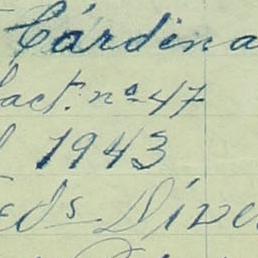 Cárdena
fact. nº 47
1943
eds Dive